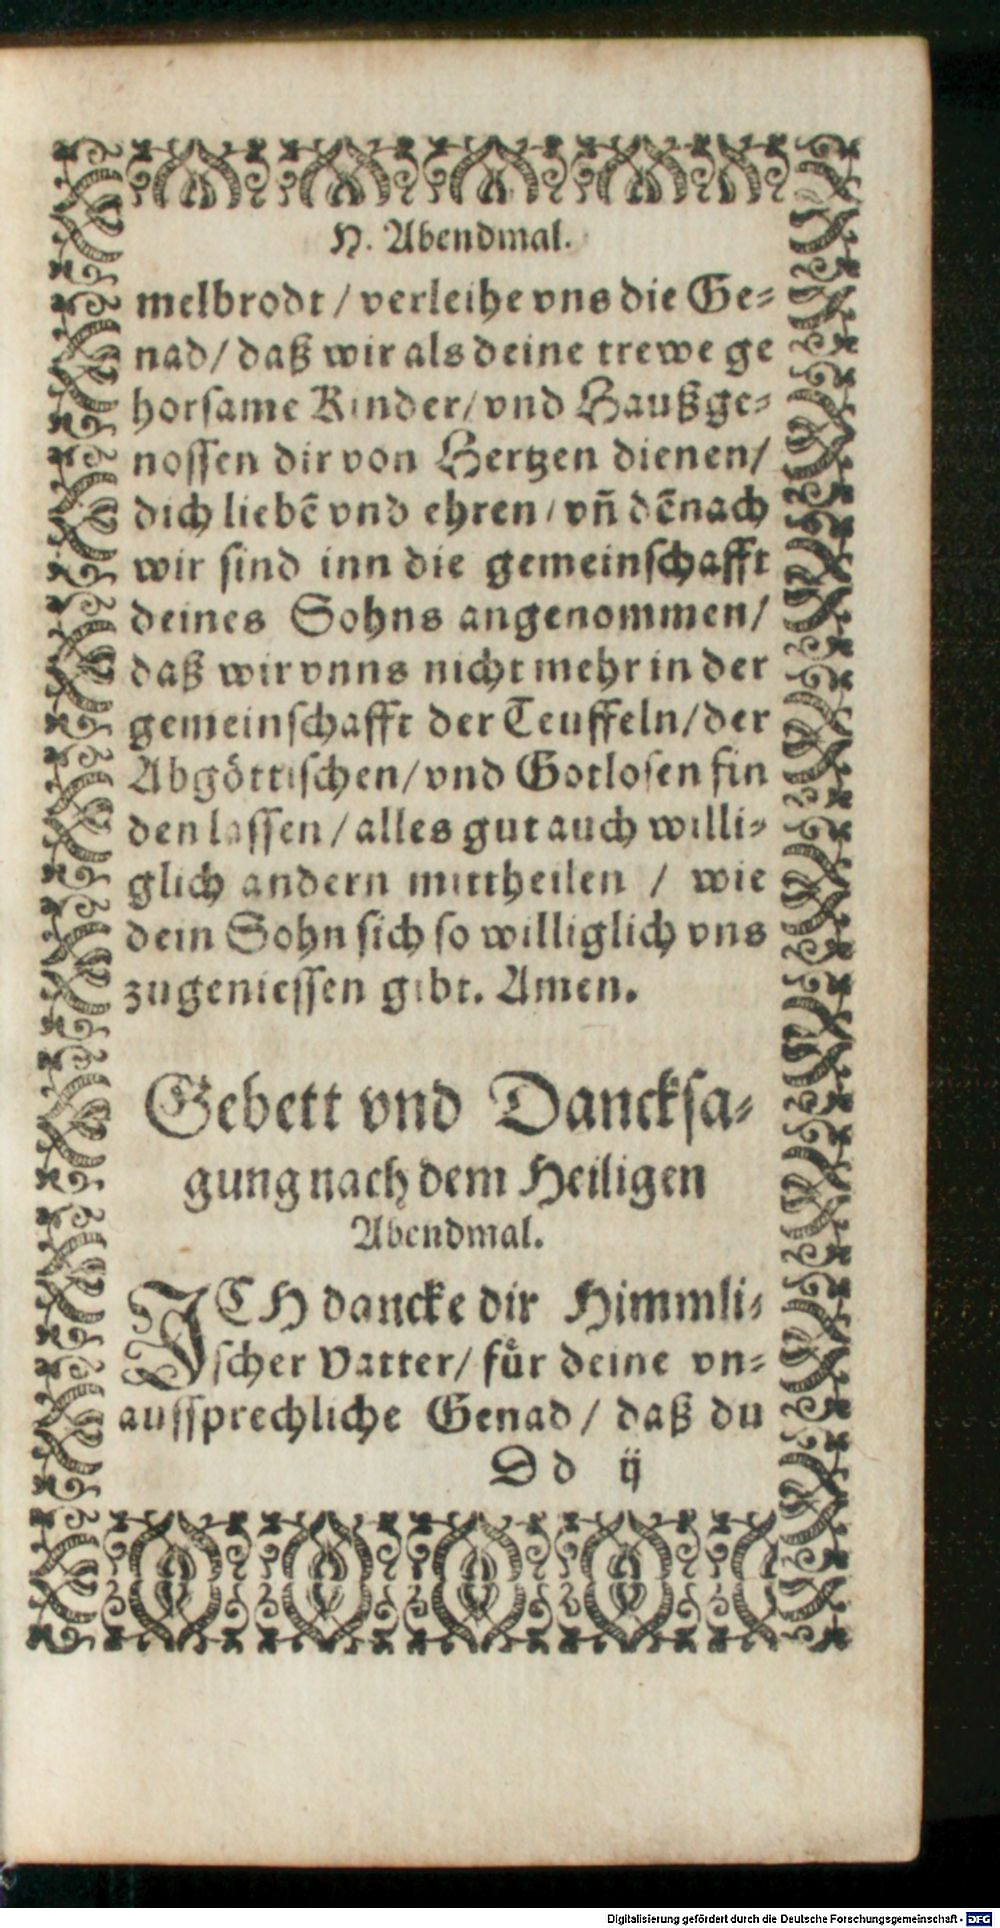 H. Abendmal.
melbrodt / verleihe vns die Ge-
nad / daß wir als deine trewe ge
horsame Kinder / vnd Haußge-
nossen dir von Hertzen dienen /
dich liebē vnd ehren / vñ dēnach
wir sind inn die gemeinschafft
deines Sohns angenommen /
daß wir vnns nicht mehr in der
gemeinschafft der Teuffeln / der
Abgöttischen / vnd Gotlosen fin
den lassen / alles gut auch willi-
glich andern mittheilen / wie
dein Sohn sich so williglich vns
zugeniessen gibt. Amen.
Gebett vnd Dancksa-
gung nach dem Heiligen
Abendmal.
ICH dancke dir Himmli-
scher Vatter / für deine vn-
aussprechliche Genad / daß du
Dd ij
Digitalisierung gefördert durch die Deutsche Forschungsgemeinschaft - DFG